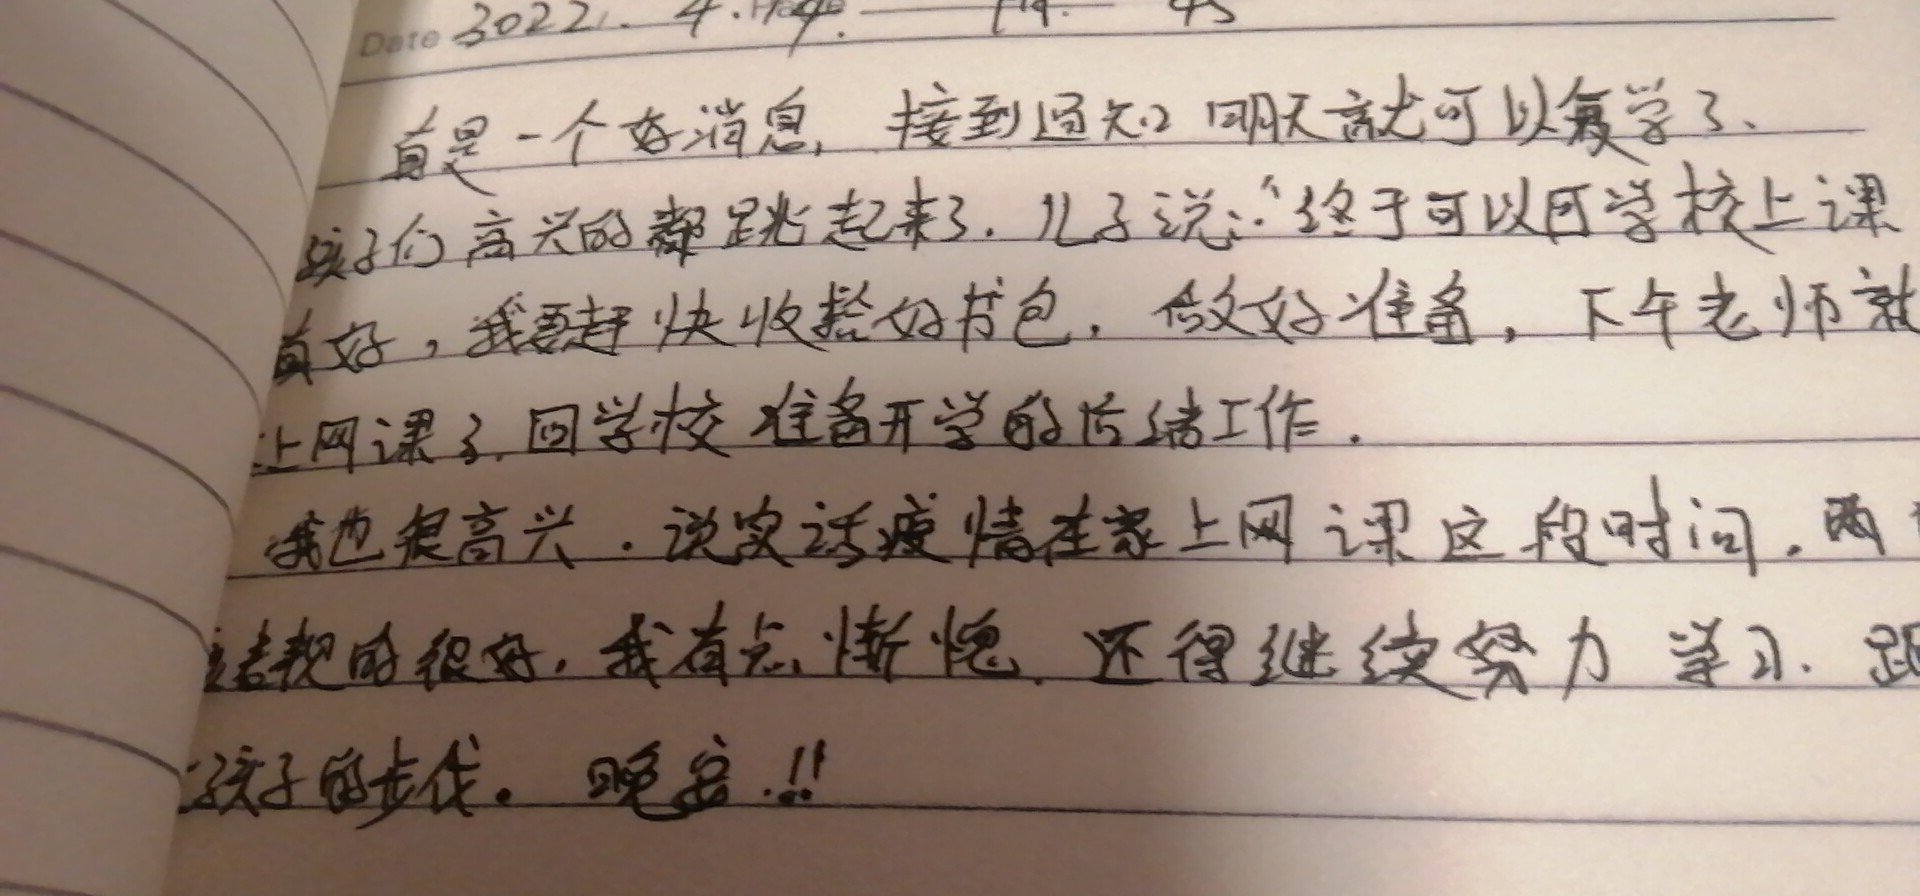 Date 2022. 4.
真是一个好消息, 接到通知 明天就可以复学了、
孩子们高兴的都跳起来了. 儿子说:“终于可以回学校上课
真好,我要赶快收捡好书包, 做好准备, 下午老师就
上网课了, 回学校准备开学的后续工作.
我也很高兴. 说实话疫情在家上网课这段时间, 两
表现的很好, 我有点惭愧, 还得继续努力学习. 跟
孩子的步伐。 晚安.!!